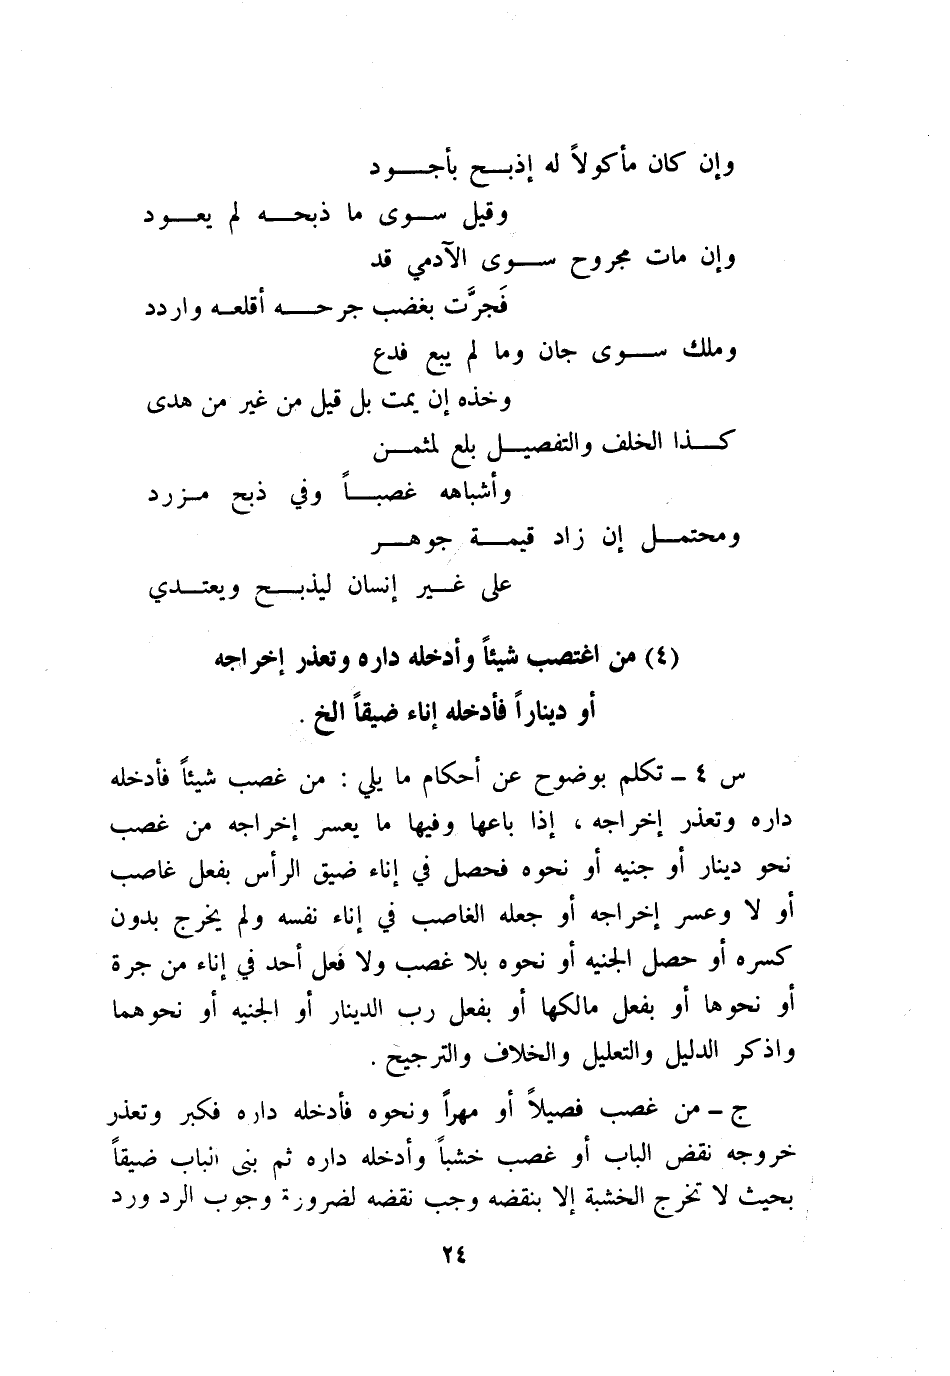 وإن كان مأكولاً له إذبح بأجود
وقيل سوى ما ذبحه لم يعود
وإن مات مجروح سوى الآدمي قد
فَجرَّت بغضب جرحه أقلعه واردد
وملك سوى جان وما لم يبع فدع
وخذه إن يمت بل قيل من غير من هدى
كذا الخلف والتفصيل بلع لمثمن
وأشباهه غصباً وفي ذبح مزرد
ومحتمل إن زاد قيمة جوهر
على غير إنسان ليذبح ويعتدي
(٤) من اغتصب شيئاً وأدخله داره وتعذر إخراجه
أو ديناراً فأدخله إناء ضيقاً الخ .
س ٤ ـ تكلم بوضوح عن أحكام ما يلي : من غصب شيئاً فأدخله
داره وتعذر إخراجه ، إذا باعها وفيها ما يعسر إخراجه من غصب
نحو دينار أو جنيه أو نحوه فحصل في إناء ضيق الرأس بفعل غاصب
أو لا وعسر إخراجه أو جعله الغاصب في إناء نفسه ولم يخرج بدون
كسره أو حصل الجنيه أو نحوه بلا غصب ولا فعل أحد في إناء من جرة
أو نحوها أو بفعل مالكها أو بفعل رب الدينار أو الجنيه أو نحوهما
واذكر الدليل والتعليل والخلاف والترجيح .
ج ـ من غصب فصيلاً أو مهراً ونحوه فأدخله داره فكبر وتعذر
خروجه نقض الباب أو غصب خشباً وأدخله داره ثم بنى الباب ضيقاً
بحيث لا تخرج الخشبة إلا بنقضه وجب نقضه لضرورة وجوب الرد ورد
٢٤